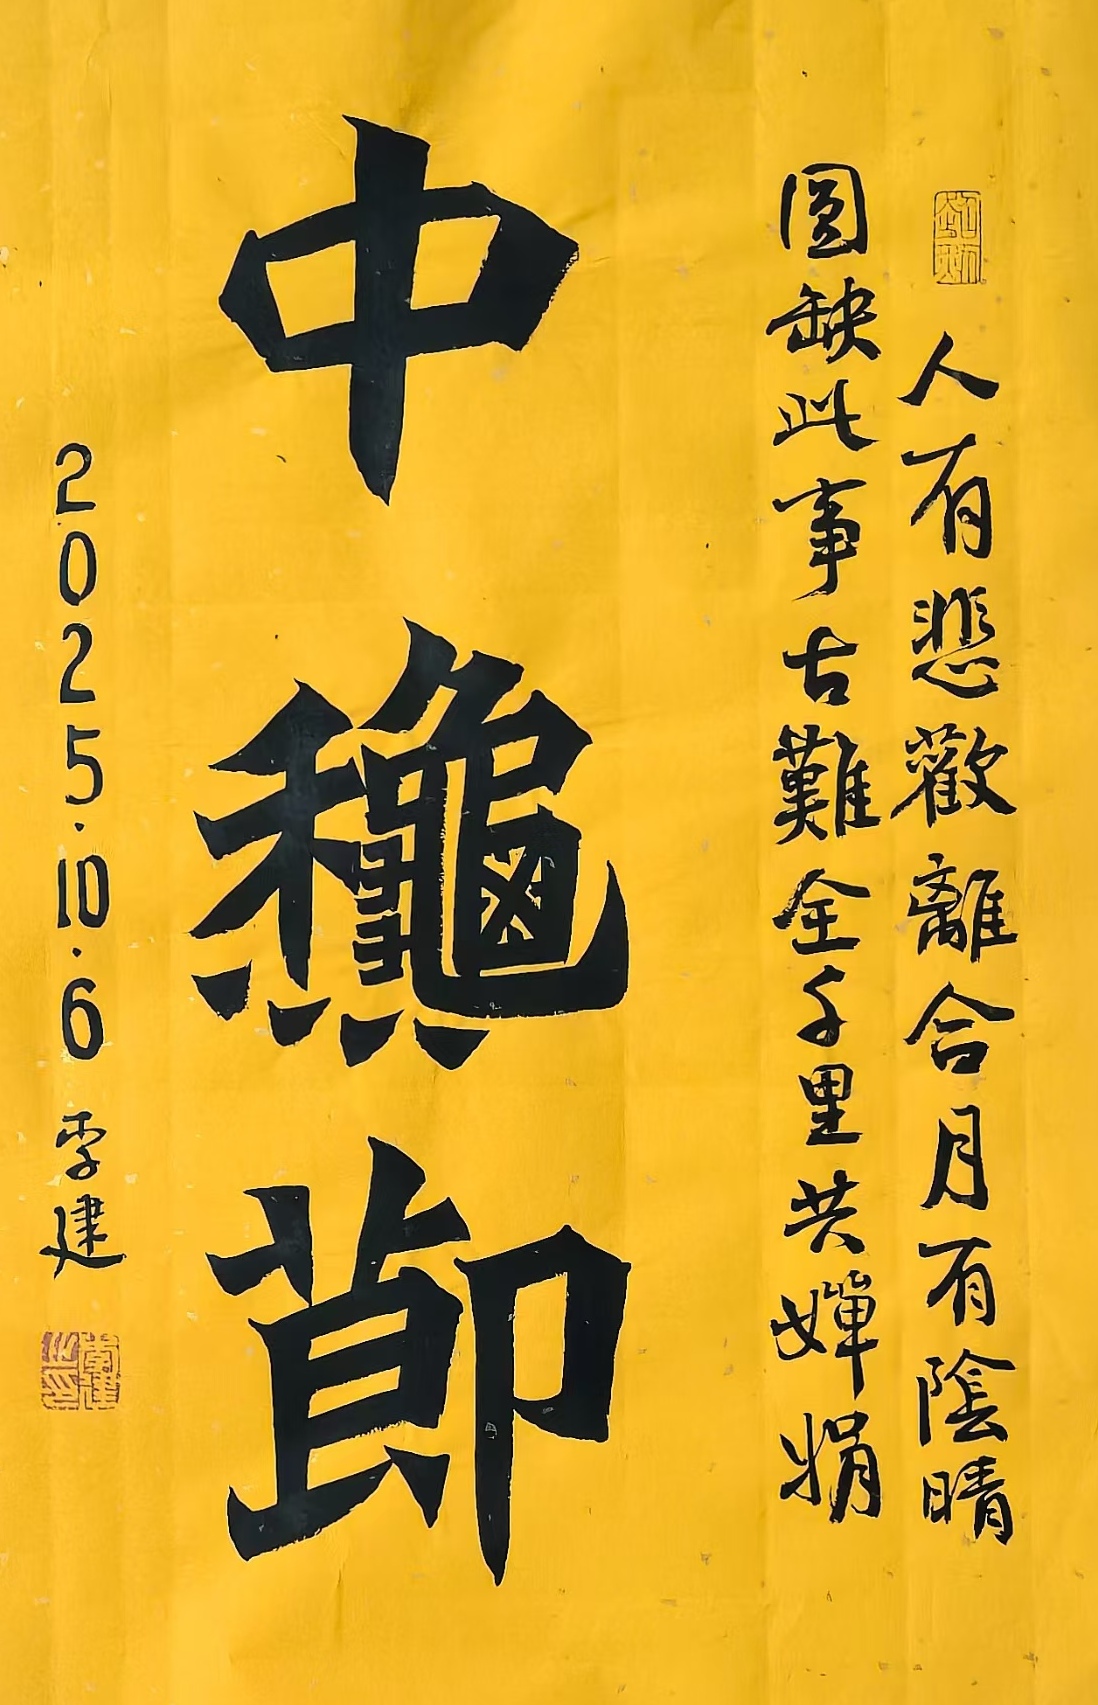 人有悲歡離合月有陰晴
圓缺此事古難全千里共嬋娟
中龝莭
2025.10.6 李建
李建之印